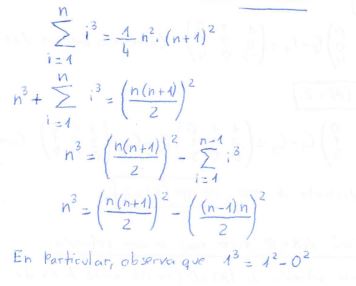 \sum_{i=1}^{n} i^3 = \frac{1}{4} n^2 \cdot (n+1)^2
n^3 + \sum_{i=1}^{n} i^3 = \left(\frac{n(n+1)}{2}\right)^2
n^3 = \left(\frac{n(n+1)}{2}\right)^2 - \sum_{i=1}^{n-1} i^3
n^3 = \left(\frac{n(n+1)}{2}\right)^2 - \left(\frac{(n-1)n}{2}\right)^2
En Particular, observa que 1^3 = 1^2 - 0^2